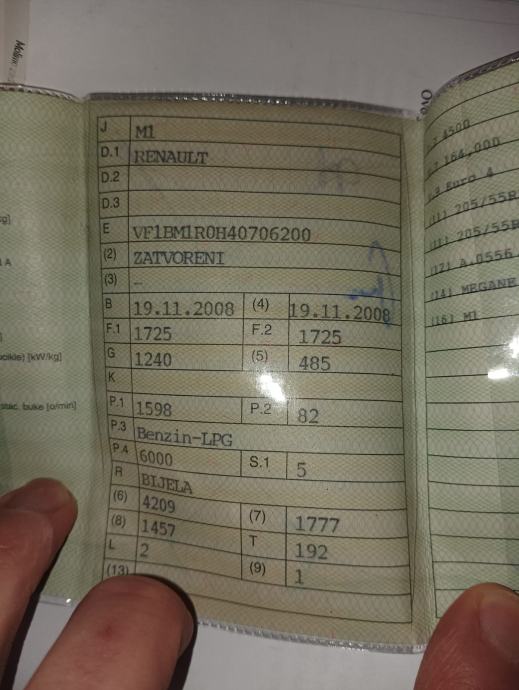 J M1
D.1 RENAULT
D.2
D.3
E VF1BM1R0H40706200
(2) ZATVORENI
(3) –
B 19.11.2008 (4) 19.11.2008
F.1 1725 F.2 1725
G 1240 (5) 485
K
P.1 1598 P.2 82
P.3 Benzin-LPG
P.4 6000 S.1 5
R BIJELA
(6) 4209 (7) 1777
(8) 1457 T 192
L 2 (9) 1
(13)
4500
164,000
Euro 4
205/55R
205/55R
(12) A.0556
(14) MEGANE
(16) M1
g]
1 A
]
cikle) [kW/kg]
stac. buke [o/min]
Ovo